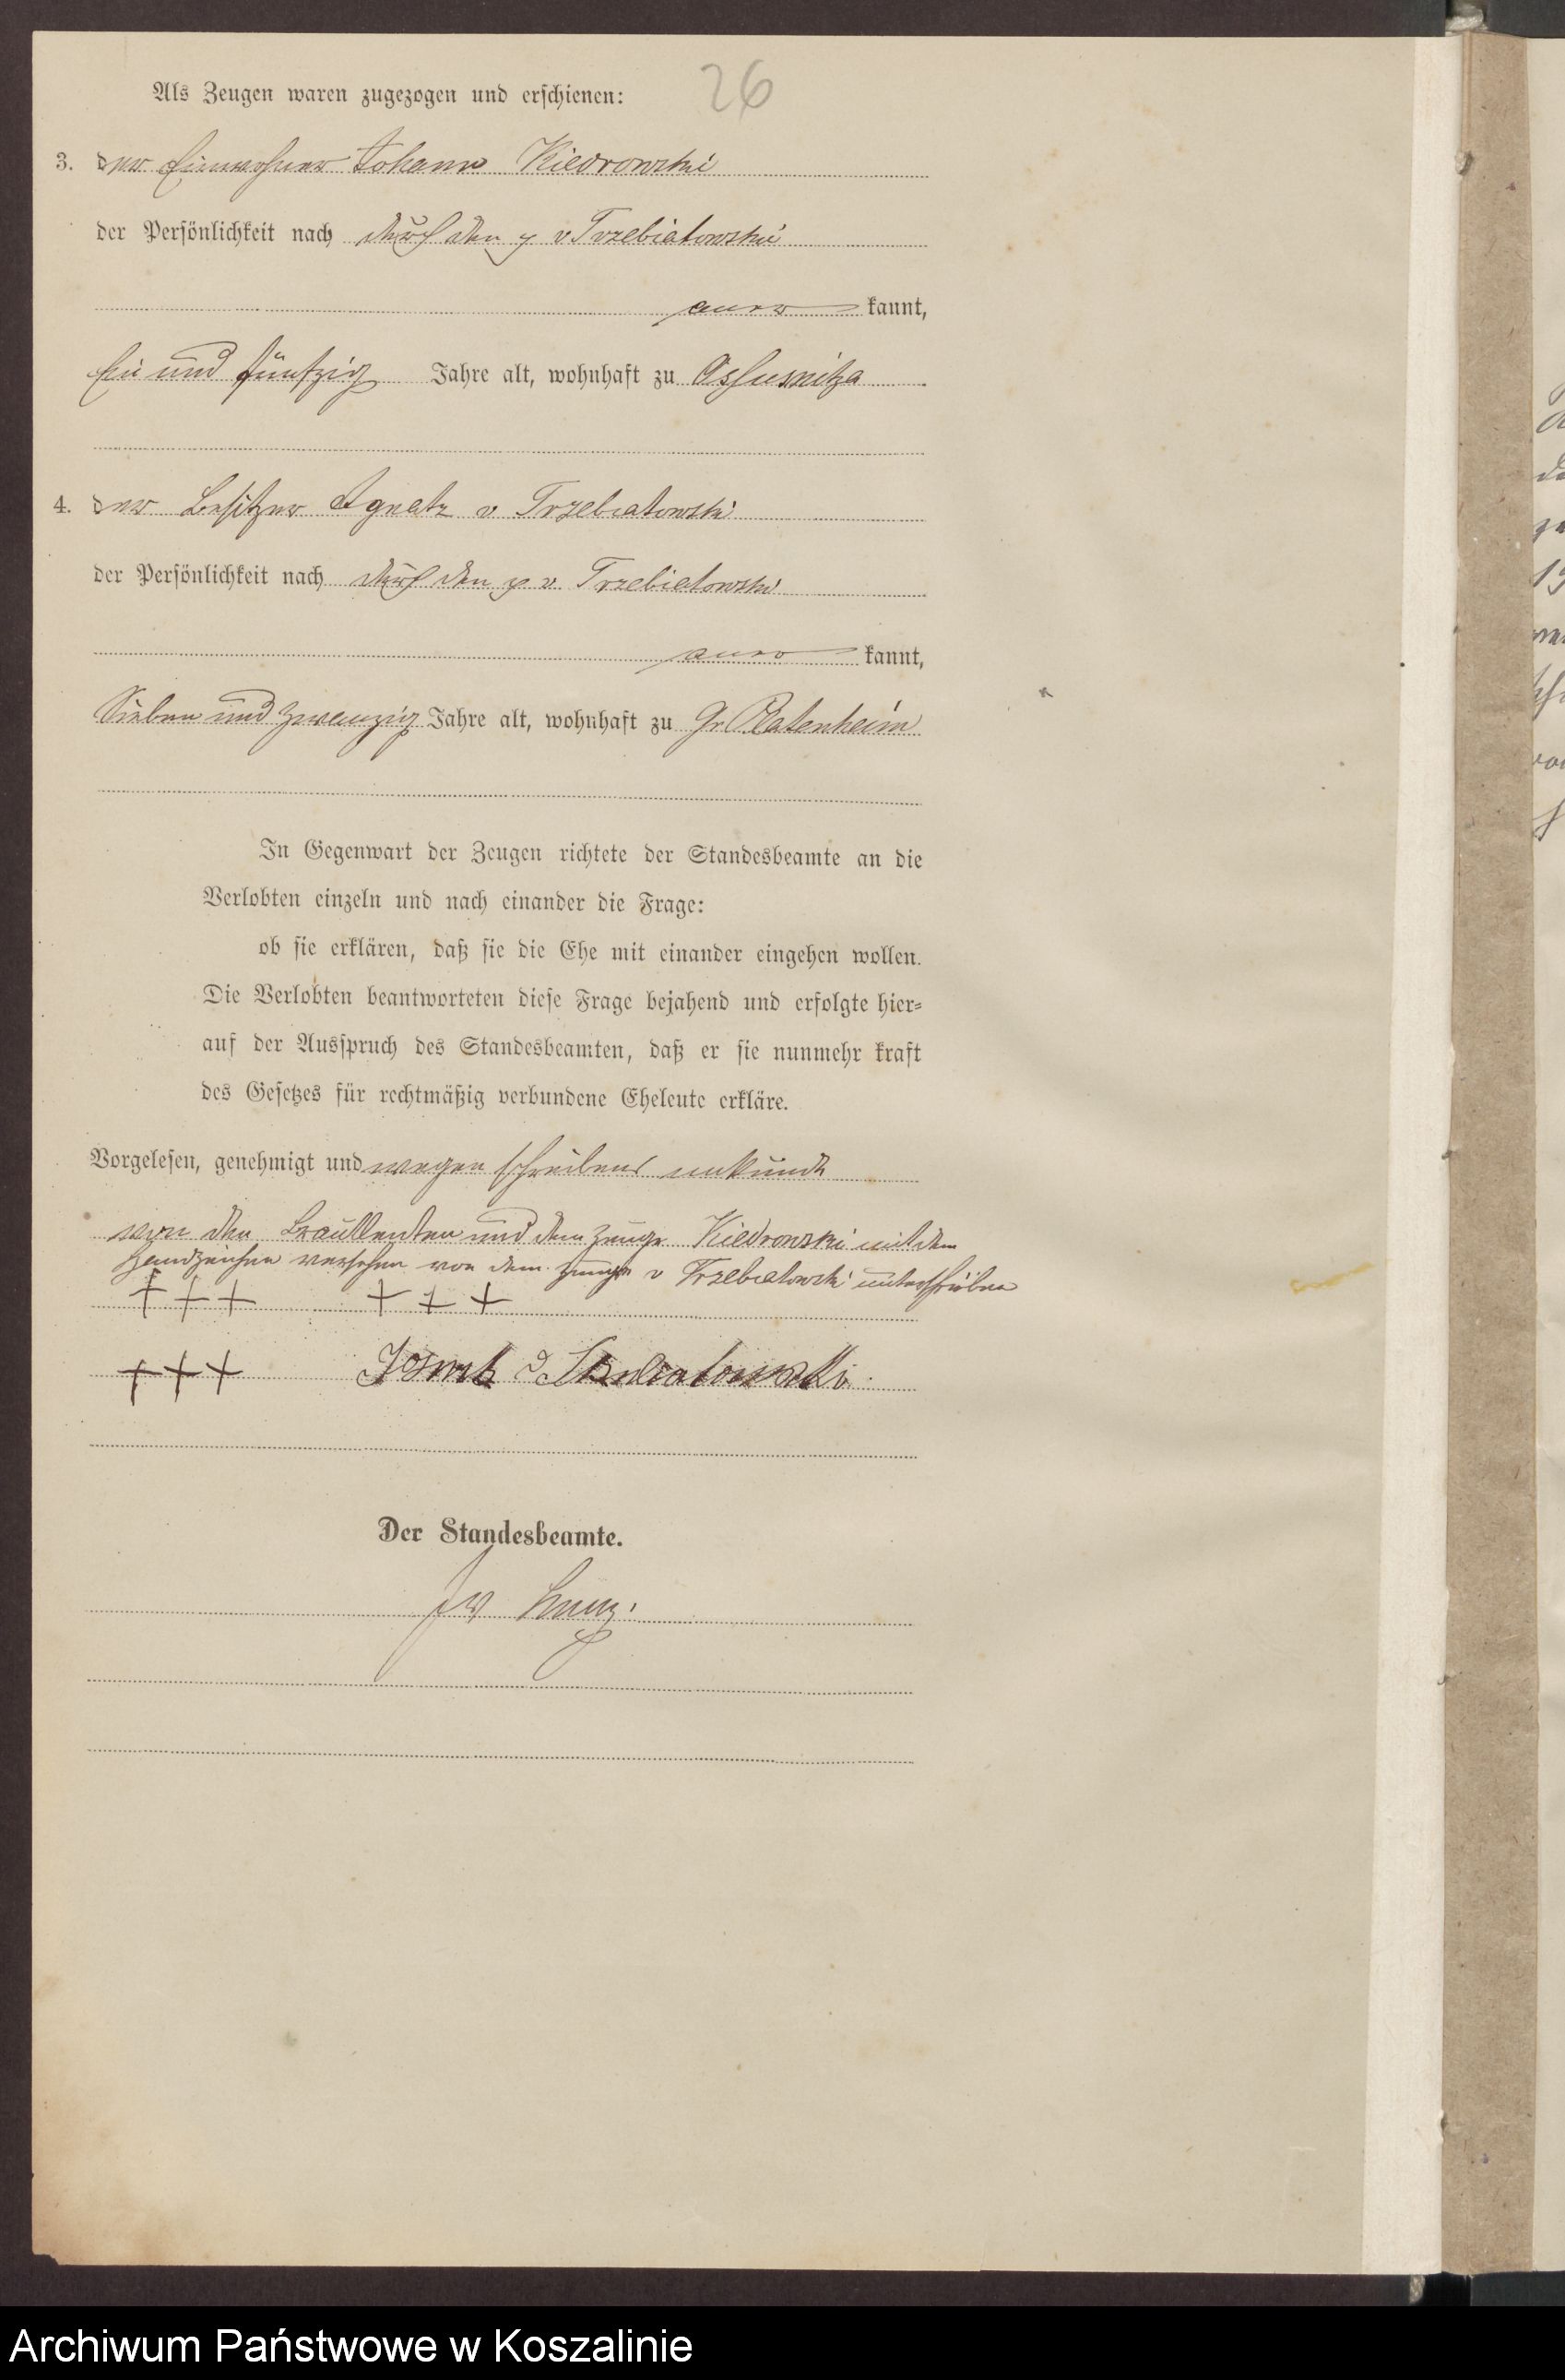 26
Als Zeugen waren zugezogen und erschienen:
3. der Einwohner Johann Kiedrowski
der Persönlichkeit nach durch den p v Trzebiatowski
aner kannt,
Ein und fünfzig Jahre alt, wohnhaft zu Ossusnitza
4. der Besitzer Ignatz v Trzebiatowski
der Persönlichkeit nach durch den p v. Trzebiatowski
aner kannt,
Sieben und zwanzig Jahre alt, wohnhaft zu Gr. Platenheim
In Gegenwart der Zeugen richtete der Standesbeamte an die
Verlobten einzeln und nach einander die Frage:
ob sie erklären, daß sie die Ehe mit einander eingehen wollen.
Die Verlobten beantworteten diese Frage bejahend und erfolgte hier-
auf der Ausspruch des Standesbeamten, daß er sie nunmehr kraft
des Gesetzes für rechtmäßig verbundene Eheleute erkläre.
Vorgelesen, genehmigt und wegen schreibens unkunde
von den Brautleuten und dem Zeuge Kiedrowski mit dem
Handzeichen versehen von dem Zeugen v Trzebiatowski unterschrieben
+++ +++
+++ v Trzebiatowski
Der Standesbeamte.
Archiwum Państwowe w Koszalinie